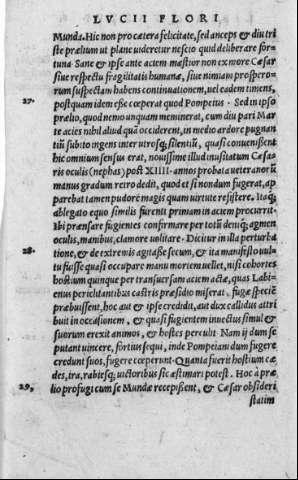 LVCII FLORI
Munda. Hic non pro cætera felicitate, sed anceps & diu tri
ste prælium ut plane uideretur nescio quid deliberare for-
tuna. Sane & ipse ante aciem mœstior non ex more Cæsar
siue respectu fragilitatis humanæ, siue nimiam prospero-
rum suspectam habens continuationem, uel eadem timens,
27. postquam idem esse cœperat quod Pompeius. Sed in ipso
prælio, quod nemo unquam meminerat, cum diu pari Mar
te acies nihil aliud quàm occiderent, in medio ardore pugnan
tiũ subito ingens inter utrosq; silentiũ, quasi conuenisset
hic omnium sensus erat, nouissime illud inusitatum Cæsa
ris oculis (nephas) post XIIII. annos probata ueteranorũ
manus gradum retro dedit, quod et si nondum fugerat, ap
parebat tamen pudore magis quam uirtute resistere. Itaq;
ablegato equo similis furenti primam in aciem procurrit.
Ibi prensare fugienes confirmare per totũ deniq; agmen
oculis, manibus, clamore uolitare. Dicitur in illa perturba
28. tione, & de extremis agitasse secum, & ita manifesto uul-
tu fuisse quasi occupare manu mortem uellet, nisi cohortes
hostium quinque per transuersam aciem actæ, quas Labi-
enus periclitantibus castris præsidio miserat, fugæ speciẽ
præbuissent, hoc aut & ipse credidit, aut dux callidus attri
buit in occasionem, & quasi fugientem inuectus simul &
suorum erexit animos, & hostes perculit. Nam ij dum se
putant uincere, fortius sequi, inde Pompeiani dum fugere
credunt suos, fugere cœperunt. Quanta fuerit hostium cæ
des, ira, rabiesq; uictoribus sic æstimari potest. Hoc à præ
29, lio profugi cum se Mundæ recepissent, & Cæsar obsideri
statim